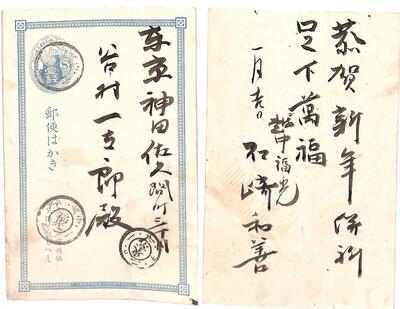 東京神田佐久間町三丁目
谷村一吉郎殿
郵便はかき
恭賀新年
足下萬福
一月吉日
越中福光
石崎和善